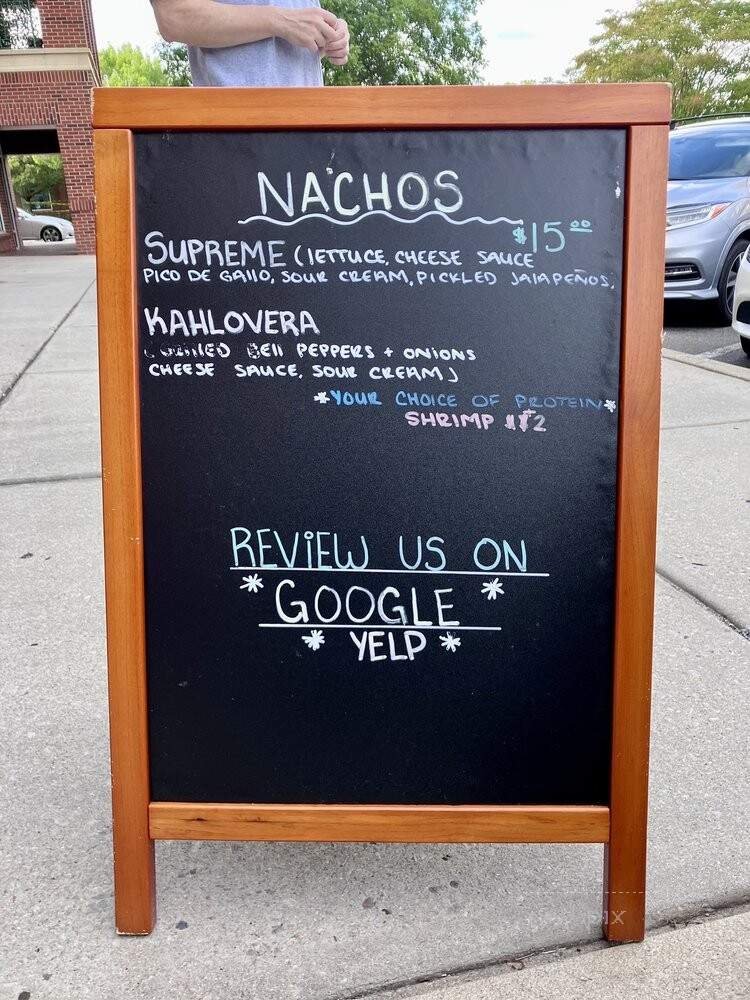 NACHOS
$15.00
SUPREME (LETTUCE, CHEESE SAUCE
PICO DE GALLO, SOUR CREAM, PICKLED JALAPEÑOS,
KAHLOVERA
BELL PEPPERS + ONIONS
CHEESE SAUCE, SOUR CREAM)
*YOUR CHOICE OF PROTEIN*
SHRIMP $2
REVIEW US ON
* GOOGLE *
* YELP *